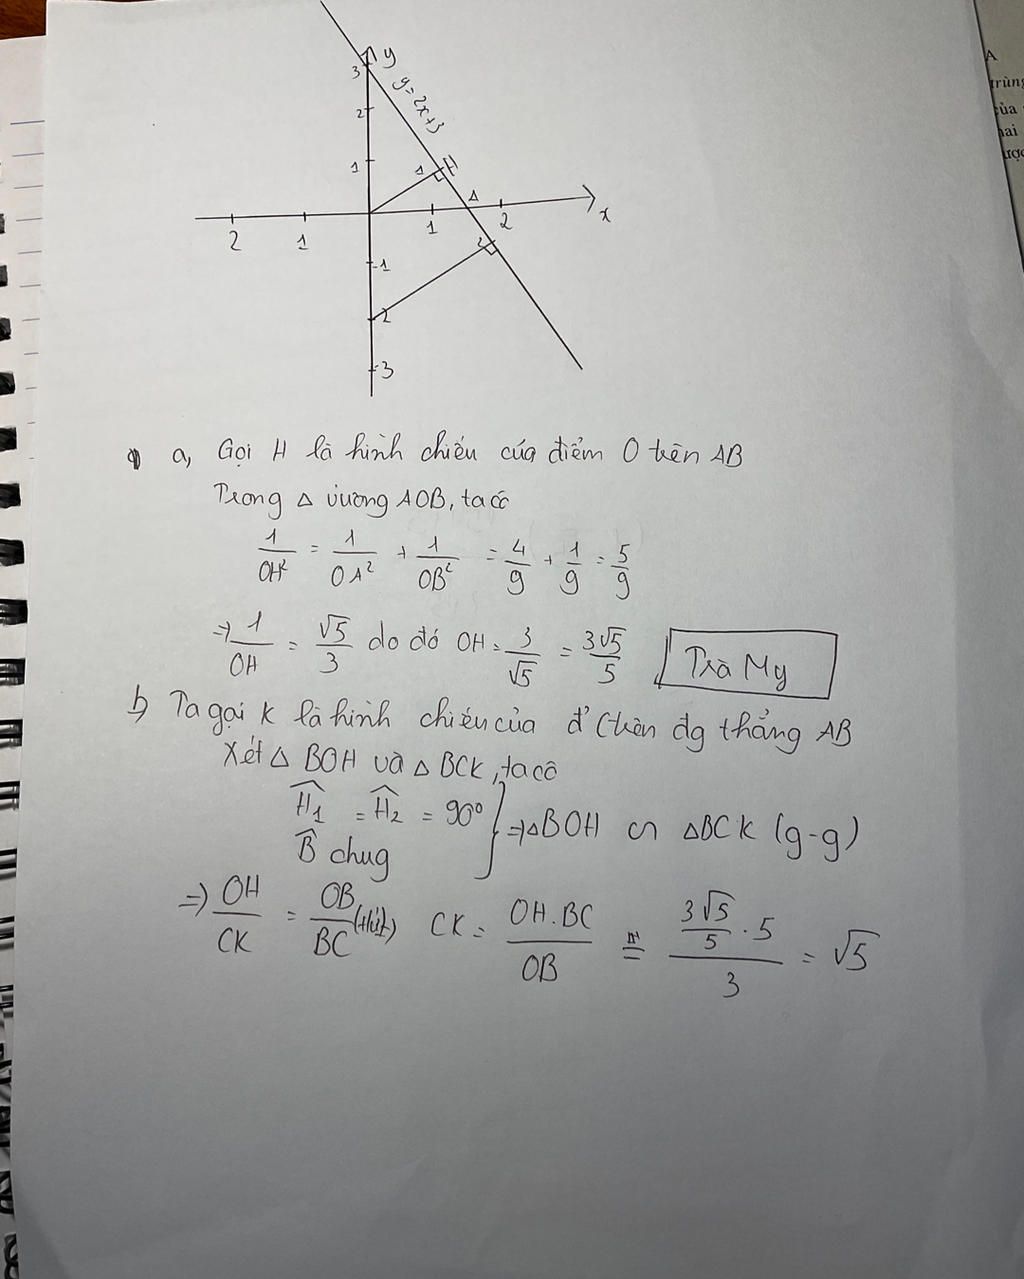 y
3
y = 2x+3
2
1
1
H
A
x
2
1
1
2
2
-1
-2
-3
a, Gọi H là hình chiếu của điểm O trên AB
Trong Δ vuông AOB, ta có
1/OH² = 1/OA² + 1/OB² = 4/9 + 1/9 = 5/9
⇒ 1/OH = √5/3 do đó OH = 3/√5 = 3√5/5
Trà My
b, Ta gọi K là hình chiếu của đ' C trên đg thẳng AB
Xét Δ BOH và Δ BCK, ta có
Ĥ1 = Ĥ2 = 90° } ⇒ ΔBOH ∽ ΔBCK (g-g)
B̂ chug
⇒ OH/CK = OB/BC CK = OH.BC/OB = (3√5/5 . 5)/3 = √5
A
trùng
của
hai
ược